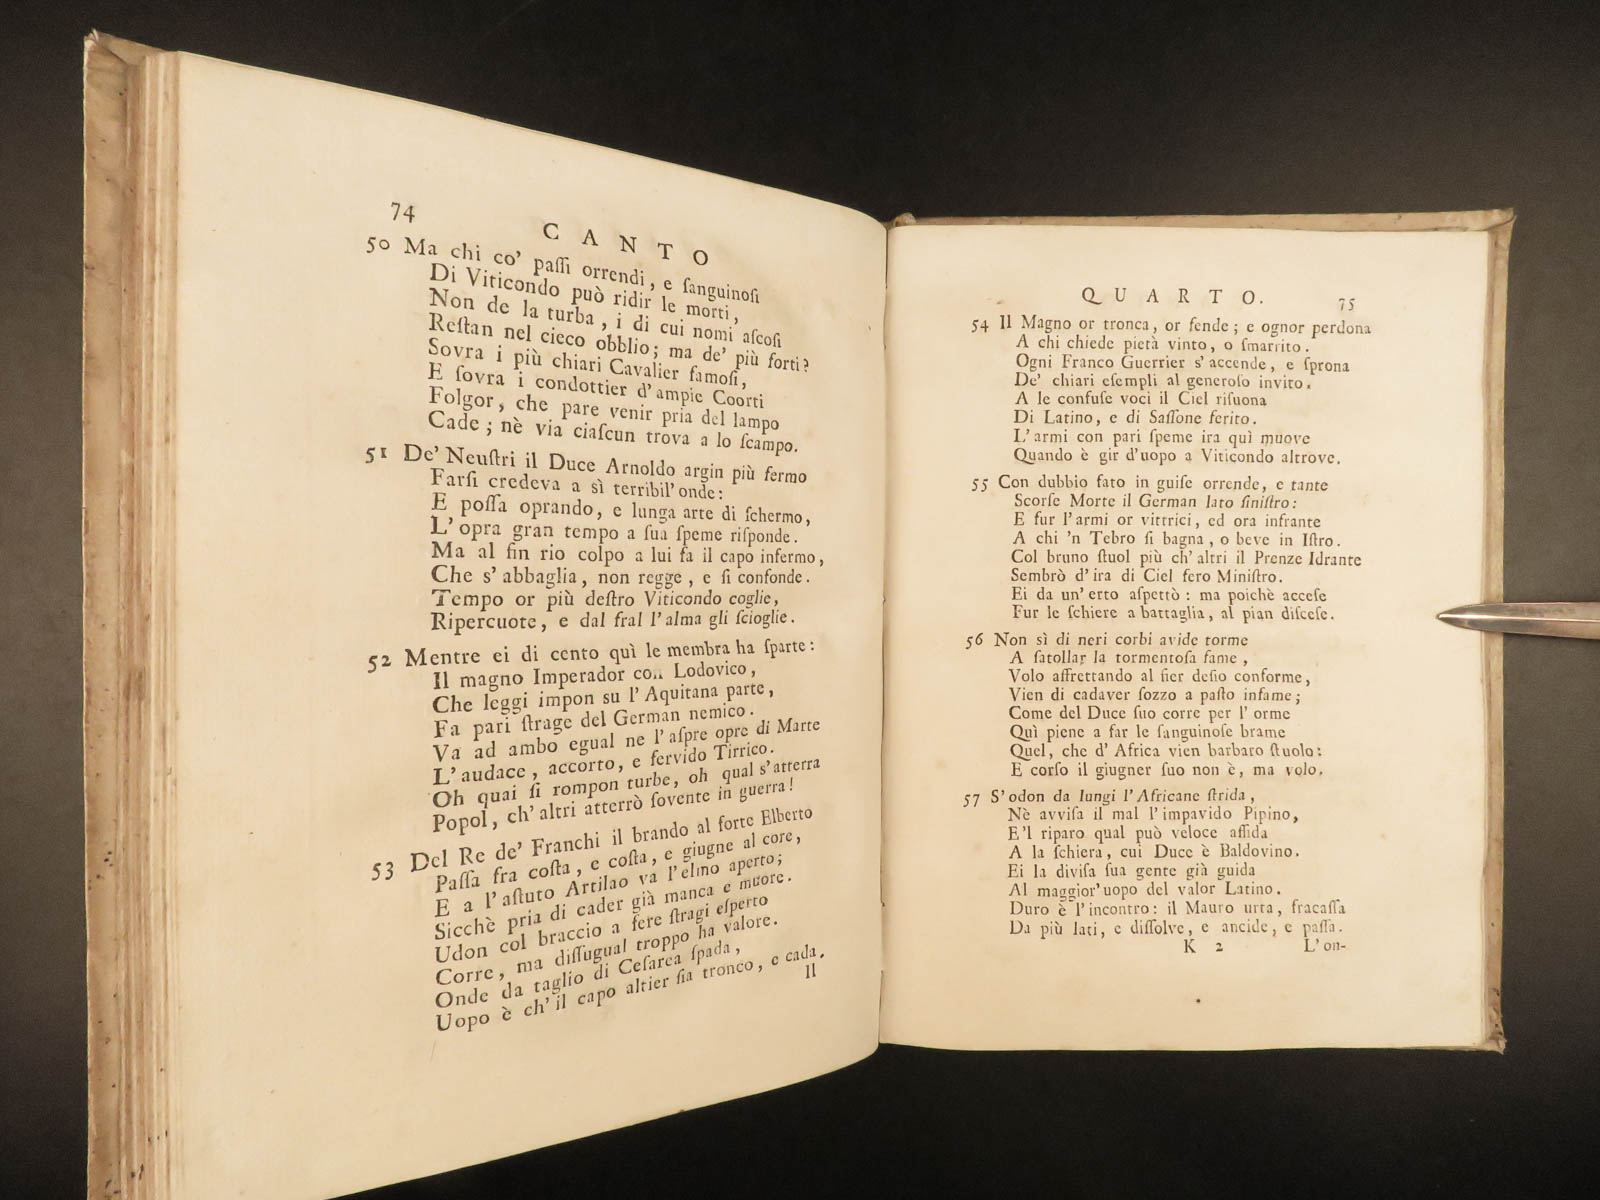 74
CANTO
50 Ma chi co' paſſi orrendi, e ſanguinoſi
Di Viticondo può ridir le morti,
Non de la turba, i di cui nomi aſcoſi
Reſtan nel cieco obblio; ma de' più forti?
Sovra i più chiari Cavalier famoſi,
E ſovra i condottier d'ampie Coorti
Folgor, che pare venir pria del lampo
Cade; nè via ciaſcun trova a lo ſcampo.
51 De' Neuſtri il Duce Arnoldo argin più fermo
Farſi credeva a sì terribil'onde:
E poſſa oprando, e lunga arte di ſchermo,
L'opra gran tempo a ſua ſpeme riſponde.
Ma al fin rio colpo a lui fa il capo infermo,
Che s'abbaglia, non regge, e ſi confonde.
Tempo or più deſtro Viticondo coglie,
Ripercuote, e dal fral l'alma gli ſcioglie.
52 Mentre ei di cento quì le membra ha ſparte:
Il magno Imperador con Lodovico,
Che leggi impon su l'Aquitana parte,
Fa pari ſtrage del German nemico.
Va ad ambo egual ne l'aſpre opre di Marte
L'audace, accorto, e fervido Tirrico.
Oh quai ſi rompon turbe, oh qual s'atterra
Popol, ch'altri atterrò ſovente in guerra!
53 Del Re de' Franchi il brando al forte Elberto
Paſſa fra coſta, e coſta, e giugne al core,
E a l'aſtuto Artilao va l'elmo aperto;
Sicchè pria di cader già manca e muore.
Udon col braccio a fere ſtragi eſperto
Corre, ma diſſugual troppo ha valore.
Onde da taglio di Ceſarea ſpada,
Uopo è ch'il capo altier ſia tronco, e cada.
Il
QUARTO.
75
54 Il Magno or tronca, or fende; e ognor perdona
A chi chiede pietà vinto, o ſmarrito.
Ogni Franco Guerrier s'accende, e ſprona
De' chiari eſempli al generoſo invito.
A le confuſe voci il Ciel riſuona
Di Latino, e di Saſſone ferito.
L'armi con pari ſpeme ira quì muove
Quando è gir d'uopo a Viticondo altrove.
55 Con dubbio fato in guiſe orrende, e tante
Scorſe Morte il German lato ſiniſtro:
E fur l'armi or vittrici, ed ora infrante
A chi 'n Tebro ſi bagna, o beve in Iſtro.
Col bruno ſtuol più ch'altri il Prenze Idrante
Sembrò d'ira di Ciel fero Miniſtro.
Ei da un'erto aſpettò: ma poichè acceſe
Fur le ſchiere a battaglia, al pian diſceſe.
56 Non sì di neri corbi avide torme
A ſatollar la tormentoſa fame,
Volo affrettando al fier deſio conforme,
Vien di cadaver ſozzo a paſto infame;
Come del Duce ſuo corre per l'orme
Quì piene a far le ſanguinoſe brame
Quel, che d'Africa vien barbaro ſtuolo:
E corſo il giugner ſuo non è, ma volo.
57 S'odon da lungi l'Africane ſtrida,
Nè avviſa il mal l'impavido Pipino,
E'l riparo qual può veloce affida
A la ſchiera, cui Duce è Baldovino.
Ei la diviſa ſua gente già guida
Al maggior'uopo del valor Latino.
Duro è l'incontro: il Mauro urta, fracaſſa
Da più lati, e diſſolve, e ancide, e paſſa.
K 2
L'on-